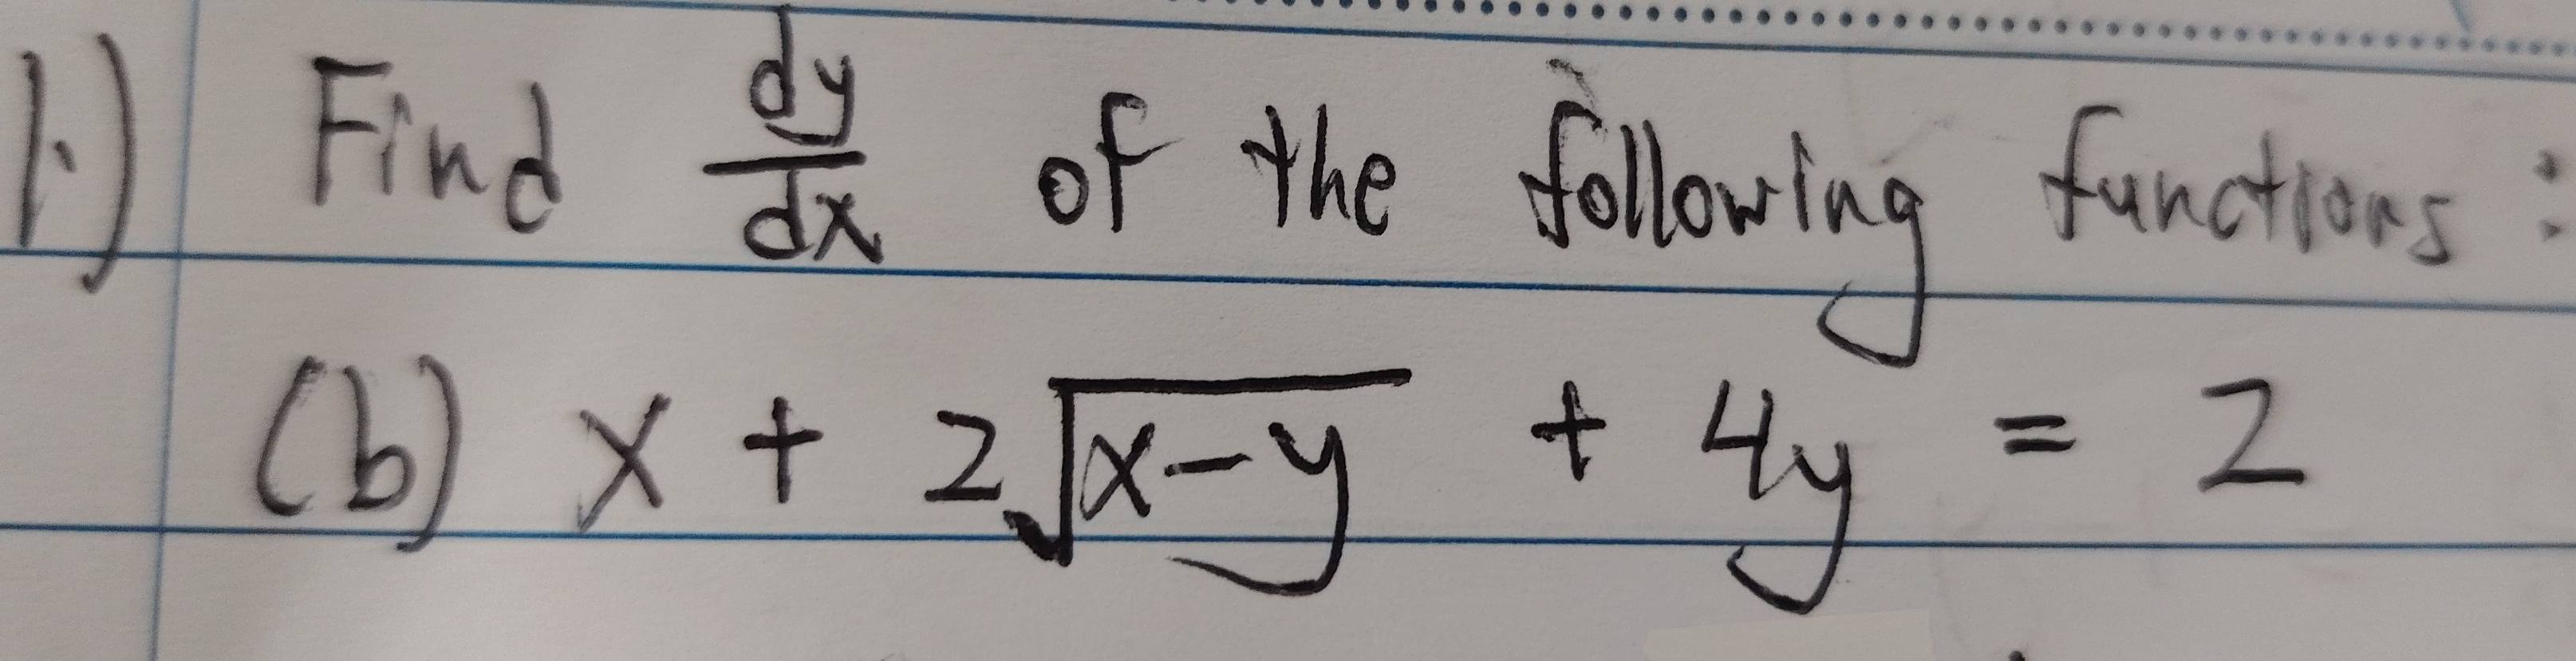 1.) Find dy/dx of the following functions:
(b) x + 2√(x-y) + 4y = 2